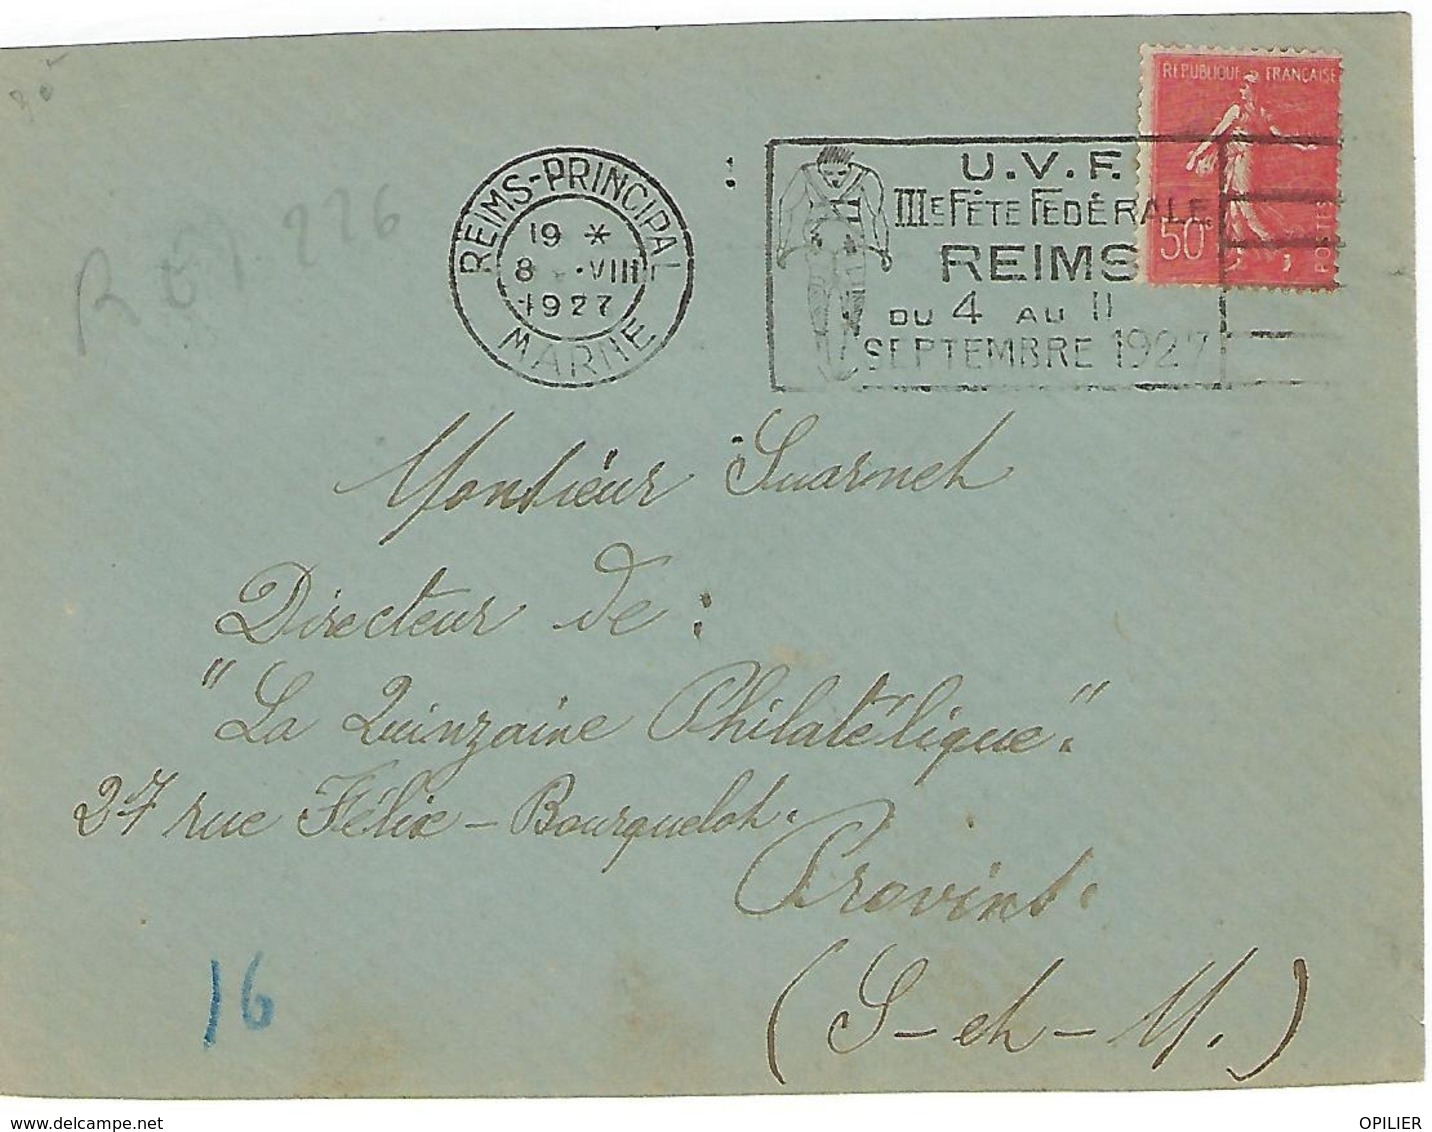 RÉPUBLIQUE FRANÇAISE
50c
POSTES
REIMS-PRINCIPAL
19 *
8 -VIII
1927
MARNE
U.V.F.
IIIE FÊTE FEDÉRALE
REIMS
DU 4 AU 11
SEPTEMBRE 1927
Monsieur Suarnet
Directeur de :
"La Quinzaine Philatélique".
27 rue Félix-Bourquelot.
Provins.
(S-et-M.)
16
www.delcampe.net
OPILIER